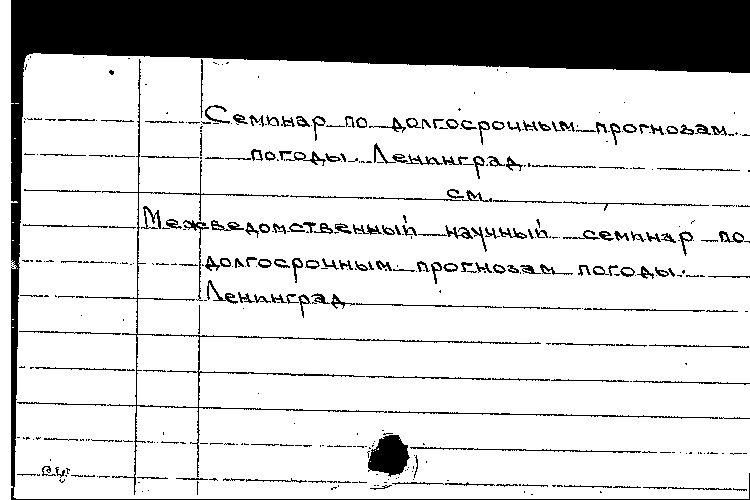 Семинар по долгосрочным прогнозам
погоды. Ленинград.
см.
Межведомственный научный семинар по
долгосрочным прогнозам погоды.
Ленинград